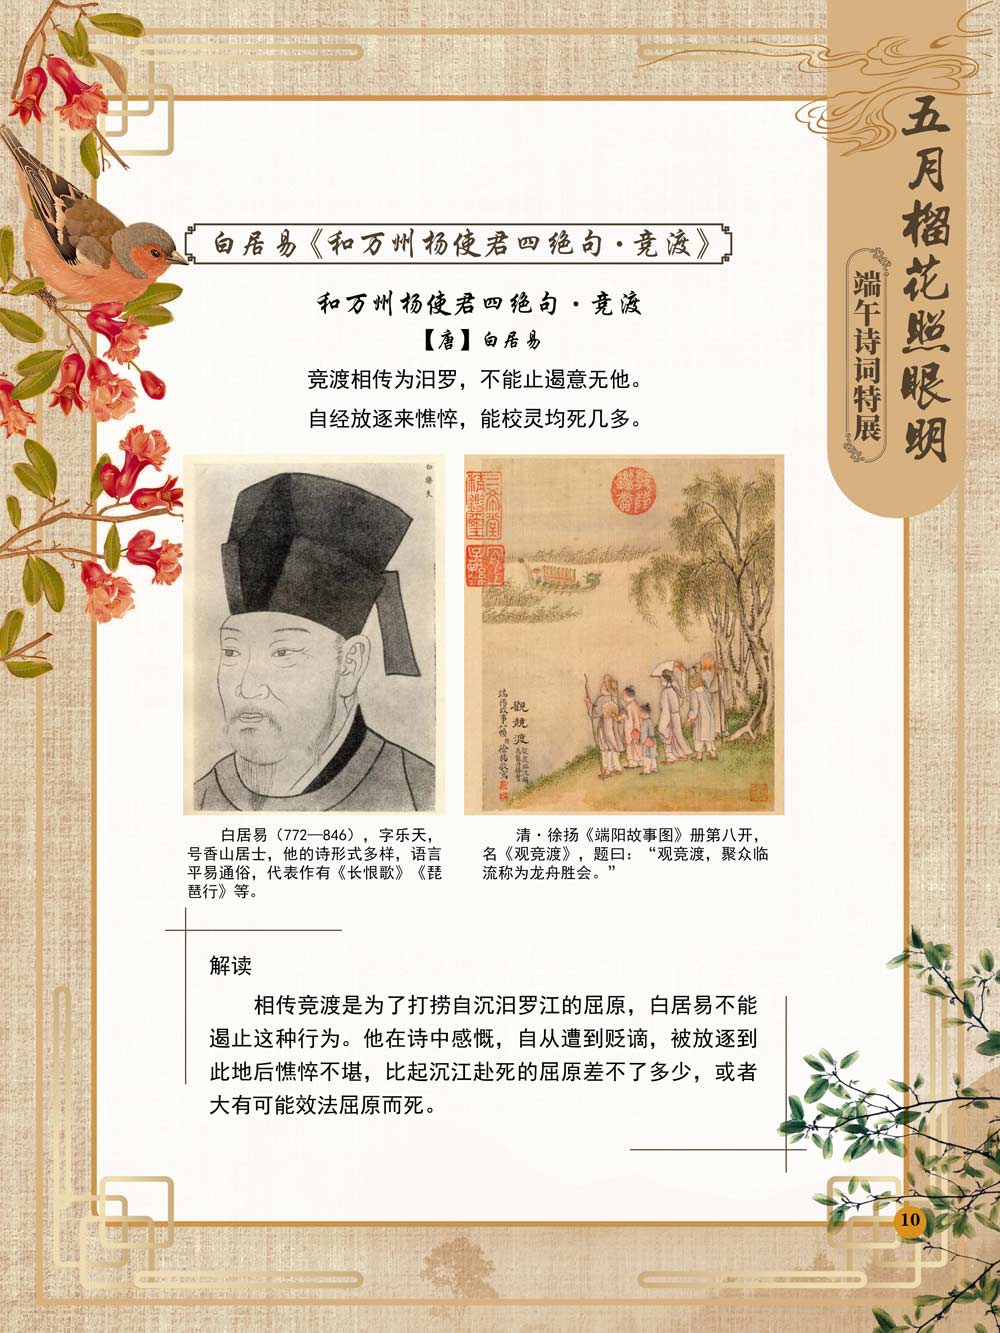 五月榴花照眼明
端午诗词特展
白居易《和万州杨使君四绝句·竞渡》
和万州杨使君四绝句·竞渡
【唐】白居易
竞渡相传为汨罗，不能止遏意无他。
自经放逐来憔悴，能校灵均死几多。
白樂天
三希堂
精鑑璽
宜子孫
觀競渡
聚眾臨流稱
為龍舟勝會
端陽故事八幀 臣徐揚敬寫
白居易（772—846），字乐天，
号香山居士，他的诗形式多样，语言
平易通俗，代表作有《长恨歌》《琵
琶行》等。
清·徐扬《端阳故事图》册第八开，
名《观竞渡》，题曰：“观竞渡，聚众临
流称为龙舟胜会。”
解读
相传竞渡是为了打捞自沉汨罗江的屈原，白居易不能
遏止这种行为。他在诗中感慨，自从遭到贬谪，被放逐到
此地后憔悴不堪，比起沉江赴死的屈原差不了多少，或者
大有可能效法屈原而死。
10